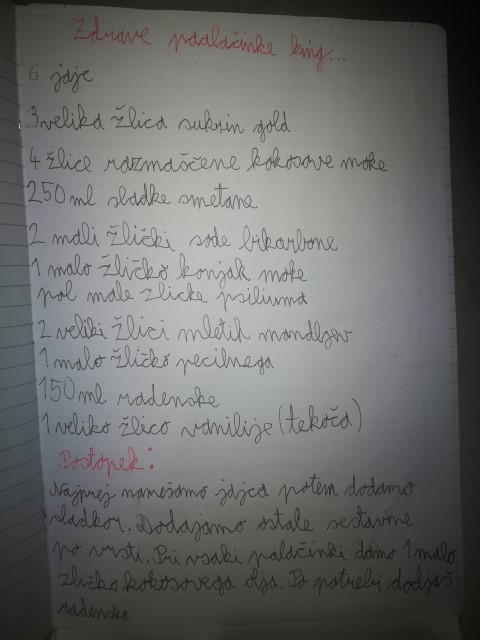 Zdrave paalačinke king...
6 jajc
3 velika žlica sukrin gold
4 žlice razmaščene kokosove moke
250 ml sladke smetane
2 mali žlički sode bikarbone
1 malo žličko konjak moke
pol male zlicke psiliuma
2 veliki žlici mletih mandljev
1 malo žličko pecilnega
150 ml radenske
1 veliko žlico vanilije (tekoča)
Postopek:
Najprej namešamo jajca potem dodamo
sladkor. Dodajamo ostale sestavine
po vrsti. Pri vsaki palačinki damo 1 malo
zličko kokosovega olja. Po potrebi dodjaš
radensko.